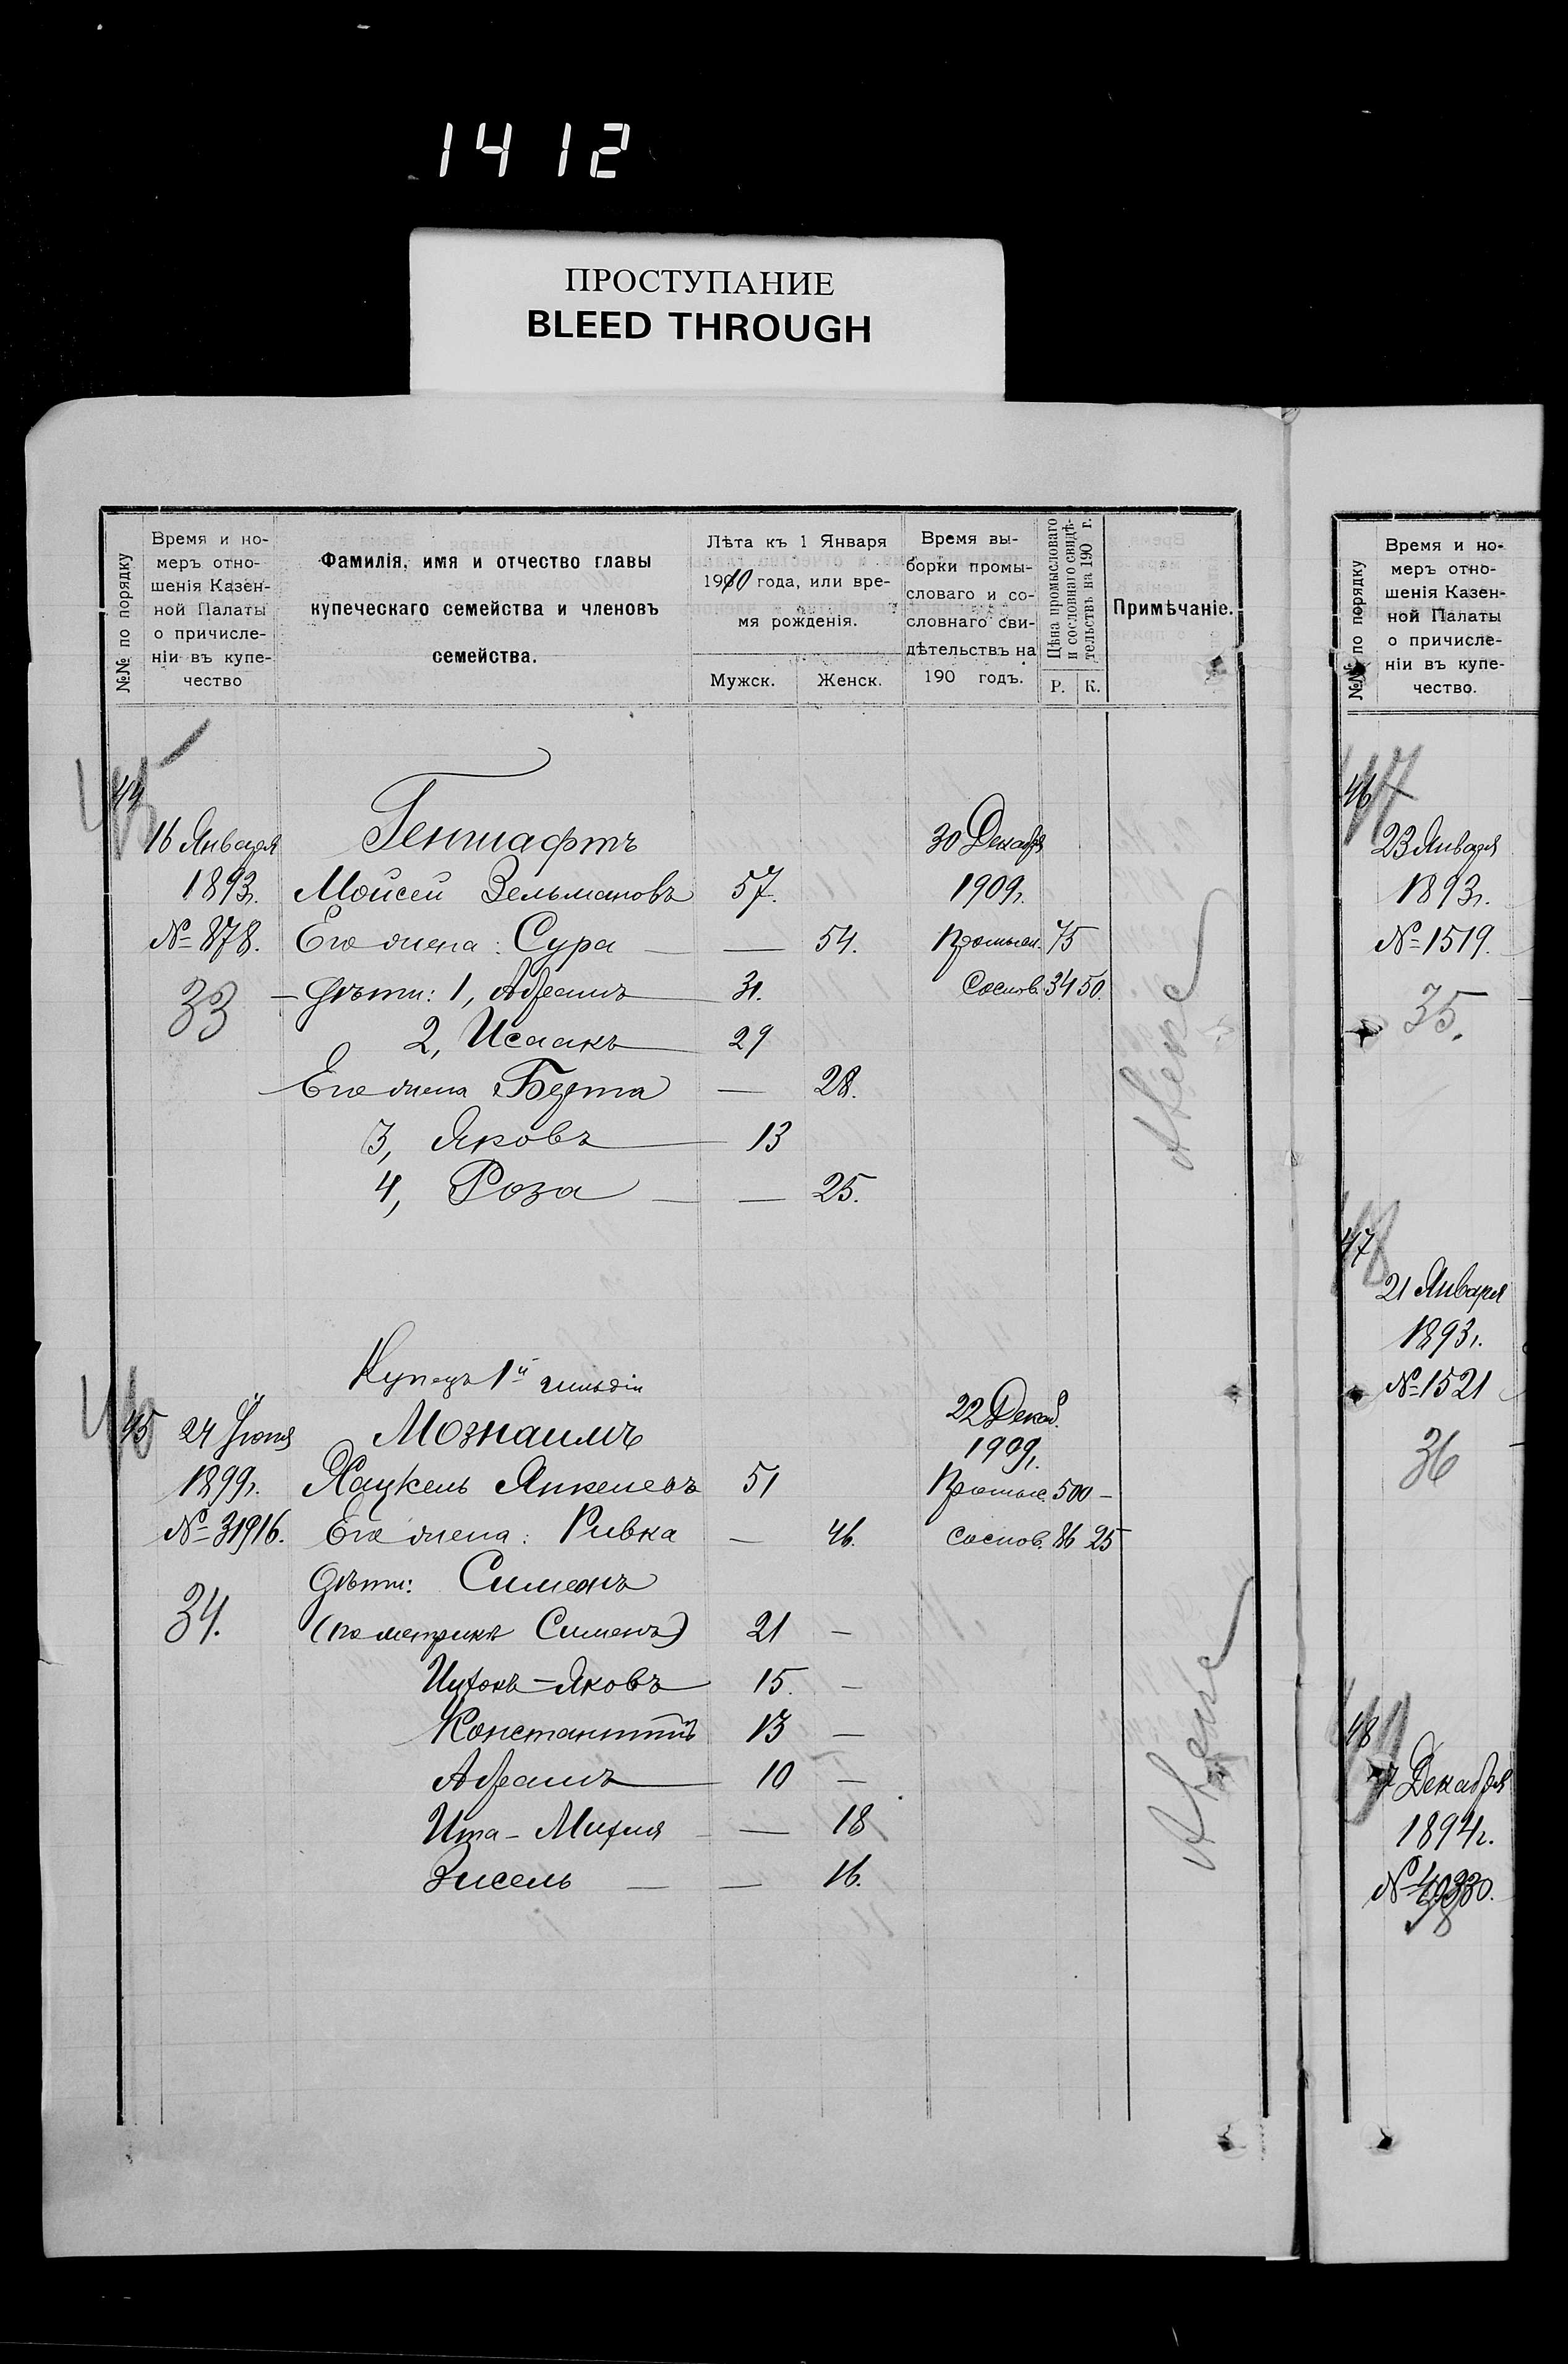 1412
ПРОСТУПАНИЕ
BLEED THROUGH
№№ по порядку
Время и но-
меръ отно-
шенія Казен-
ной Палаты
о причисле-
ніи въ купе-
чество
Фамилія, имя и отчество главы
купеческаго семейства и членовъ
семейства.
Лѣта къ 1 Января
1910 года, или вре-
мя рожденія.
Мужск. Женск.
Время вы-
борки промы-
словаго и со-
словнаго сви-
дѣтельствъ на
190 годъ.
Цѣна промысловаго
и сословнаго свидѣ-
тельствъ на 190 г.
Р. К.
Примѣчаніе.
44
45
16 Января Геншафтъ 30 Декабря
1893г. Мойсей Зельмановъ 57. 1909г.
№ 878. Его жена: Сура — — 54. Промысл. 75
33 — Дѣти: 1, Абрамъ 31. Сослов. 34 50.
2, Исаакъ 29
Его жена Берта — 28.
3, Яковъ 13
4, Роза — — 25.
Купецъ 1й гильдіи
46
45 24 Іюня Мознаимъ 22 Декаб.
1909г.
1899г. Хацкель Янкелевъ 51 Промысл. 500 —
№ 31916. Его жена: Ривка — 46. Сослов. 86 25
Дѣти: Симонъ
34. (по метрикѣ Сименъ) 21 —
Ицхокъ-Яковъ 15. —
Константинъ 13 —
Абрамъ 10 —
Ита-Мирля — 18
Зисель — — 16.
№№ по порядку
Время и но-
меръ отно-
шенія Казен-
ной Палаты
о причисле-
ніи въ купе-
чество.
46
47
23 Января
1893г.
№ 1519.
35.
47
48
21 Января
1893г.
№ 1521
36
48
49
Декабря
1894г.